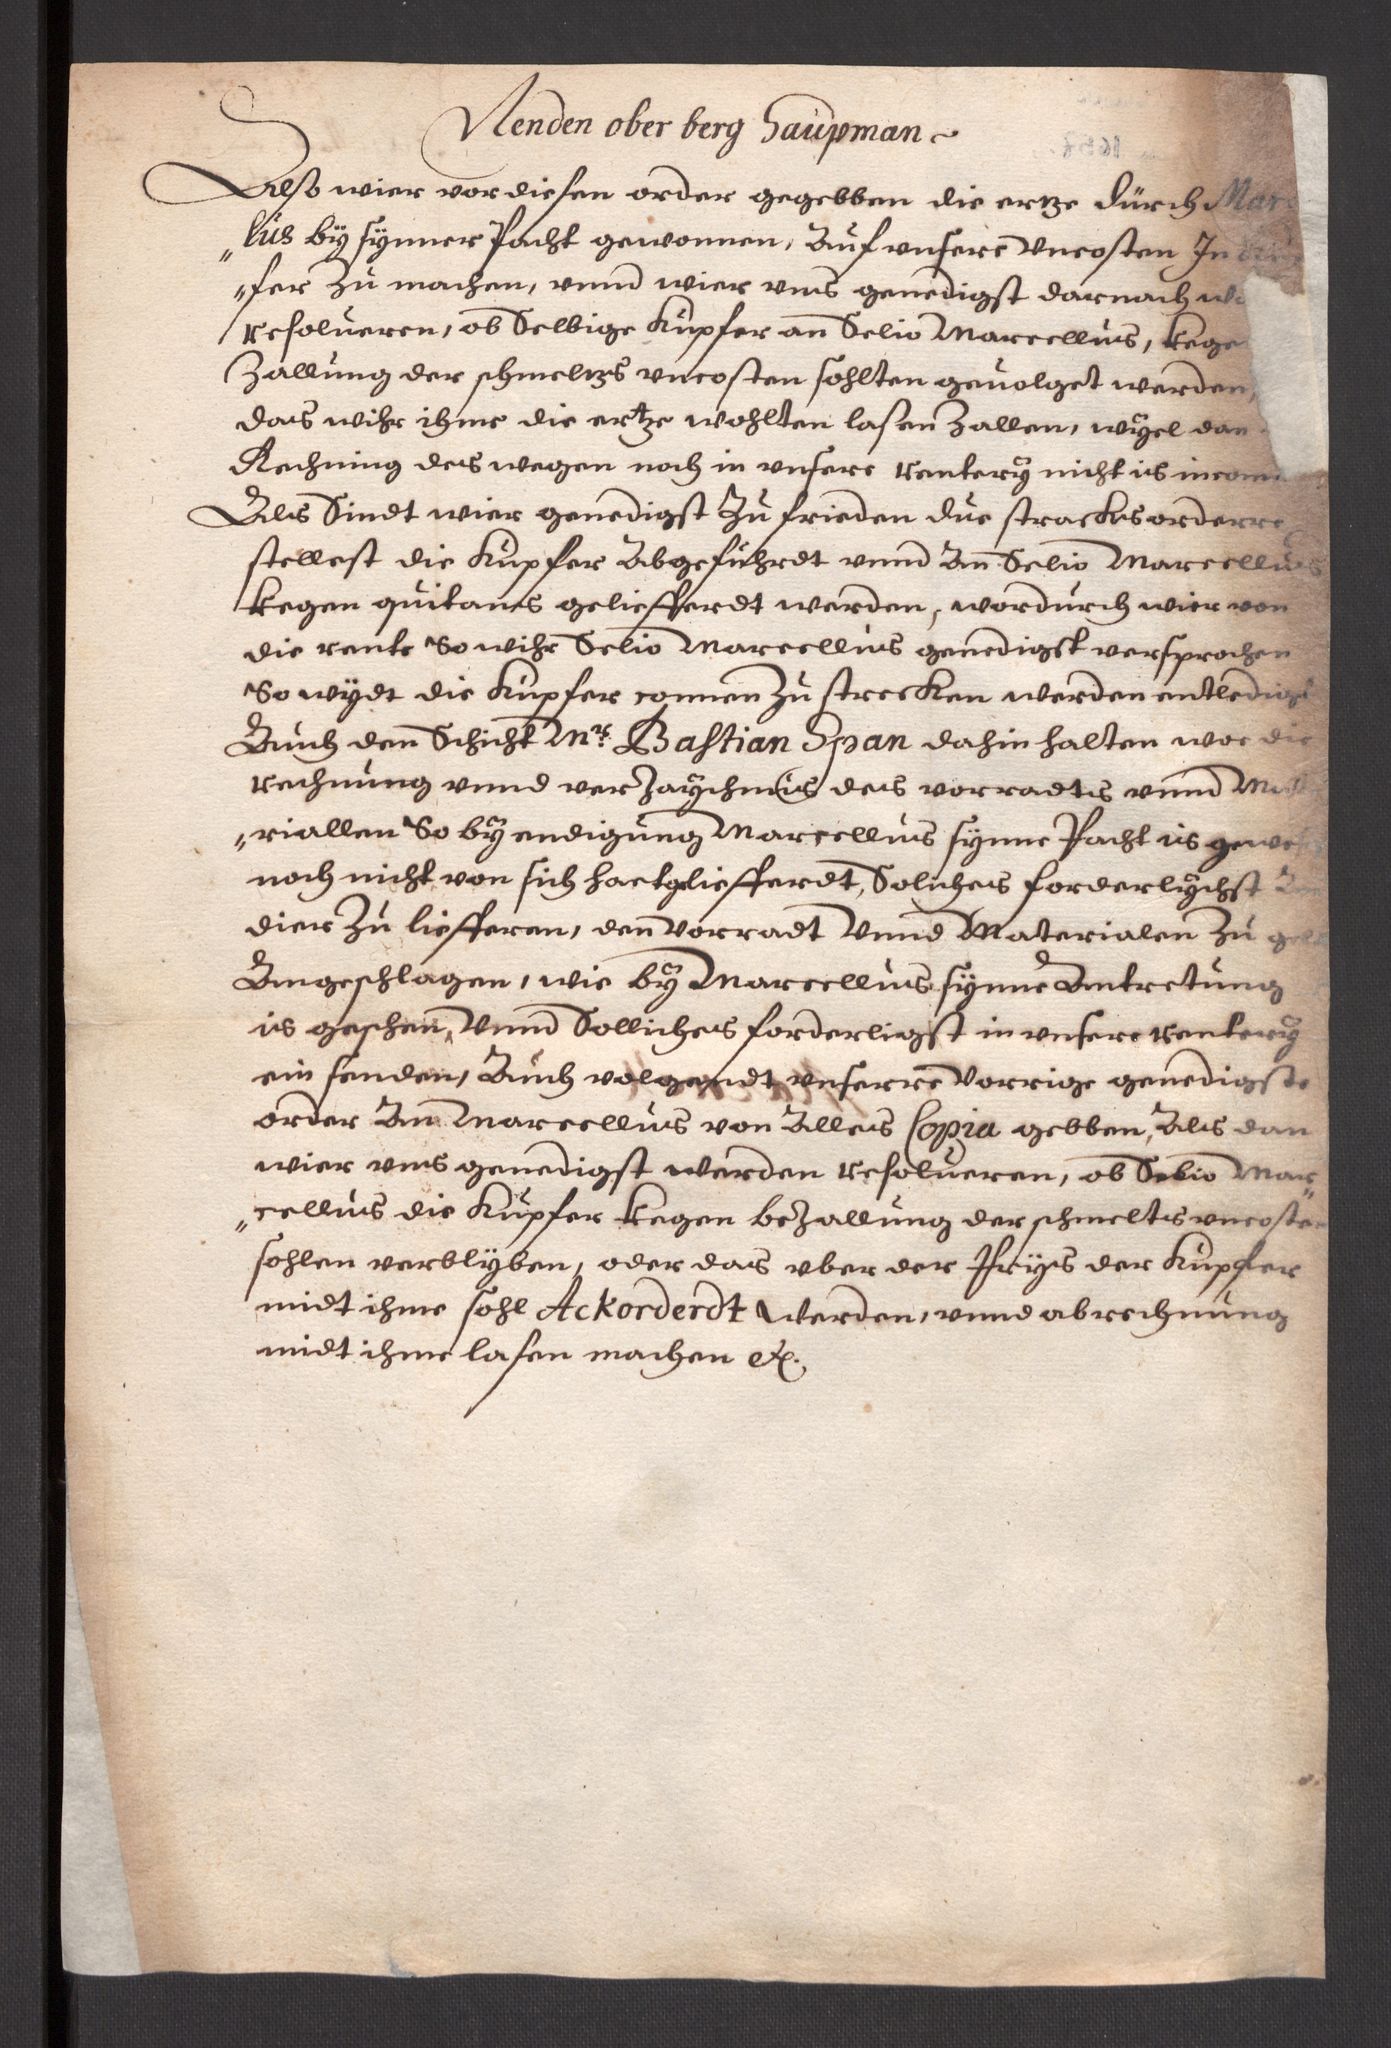 Aenden ober berg Haüpman
Also wier vor diesen order gegebben die ertze dürch Mar
„lüs by synner Pacht gewonnen, Auf vnsere vncosten In
„fer zu machen, vnnd wier vns genedigst darnach
resolueren, ob Selbige Kupfer an Selio Marcellus, kege
Zallung der schmeltzs vncosten sohlten geuolget werden,
das wihr ihme die ertze wohlten lasen Zallen, wyel dan
Rechning des wegen noch in vnsere rentery nicht is incom
Als Sindt wier genedigst Zu frieden due stracks orderre
stellest die Kupfer Abgefuhrdt vnnd An Selio Marcellus
kegen quitans geliefferdt werden, wordurch wier von
die rente So wihr Selio Marcellus genedigst versprochen
So wydt die Kupfer connen Zu strecken werden entledigt
Auch den Schicht Mr. Bastian Span dahin halten woe die
rechnung vnnd verzaychnus des vorradts vnnd Mate
„riallen So by endigung Marcellus synne Pacht is gewesen
noch nicht von sich haet geliefferdt, Soliches forderlychst An
dier Zu liefferen, den Vorradt Vnnd Materialen Zu gelt
Angeschlagen, wie by Marcellus synne Antretung
is geschen, Vnnd Solliches forderligst in vnsere rentery
ein senden, Auch volgendt vnserre Vorrige genedigste
order An Marcellus von Alles Copia gebben, Als dan
wier vns genedigst werden resolueren, ob Selio Mar„
„cellus die Kupfer kegen beZallung der schmelts vncosten
sohlen verblyben, oder das vber der Prys der Kupfer
midt ihme sohl Ackorderdt Werden, vnnd abrechnung
midt ihme lasen machen etc.